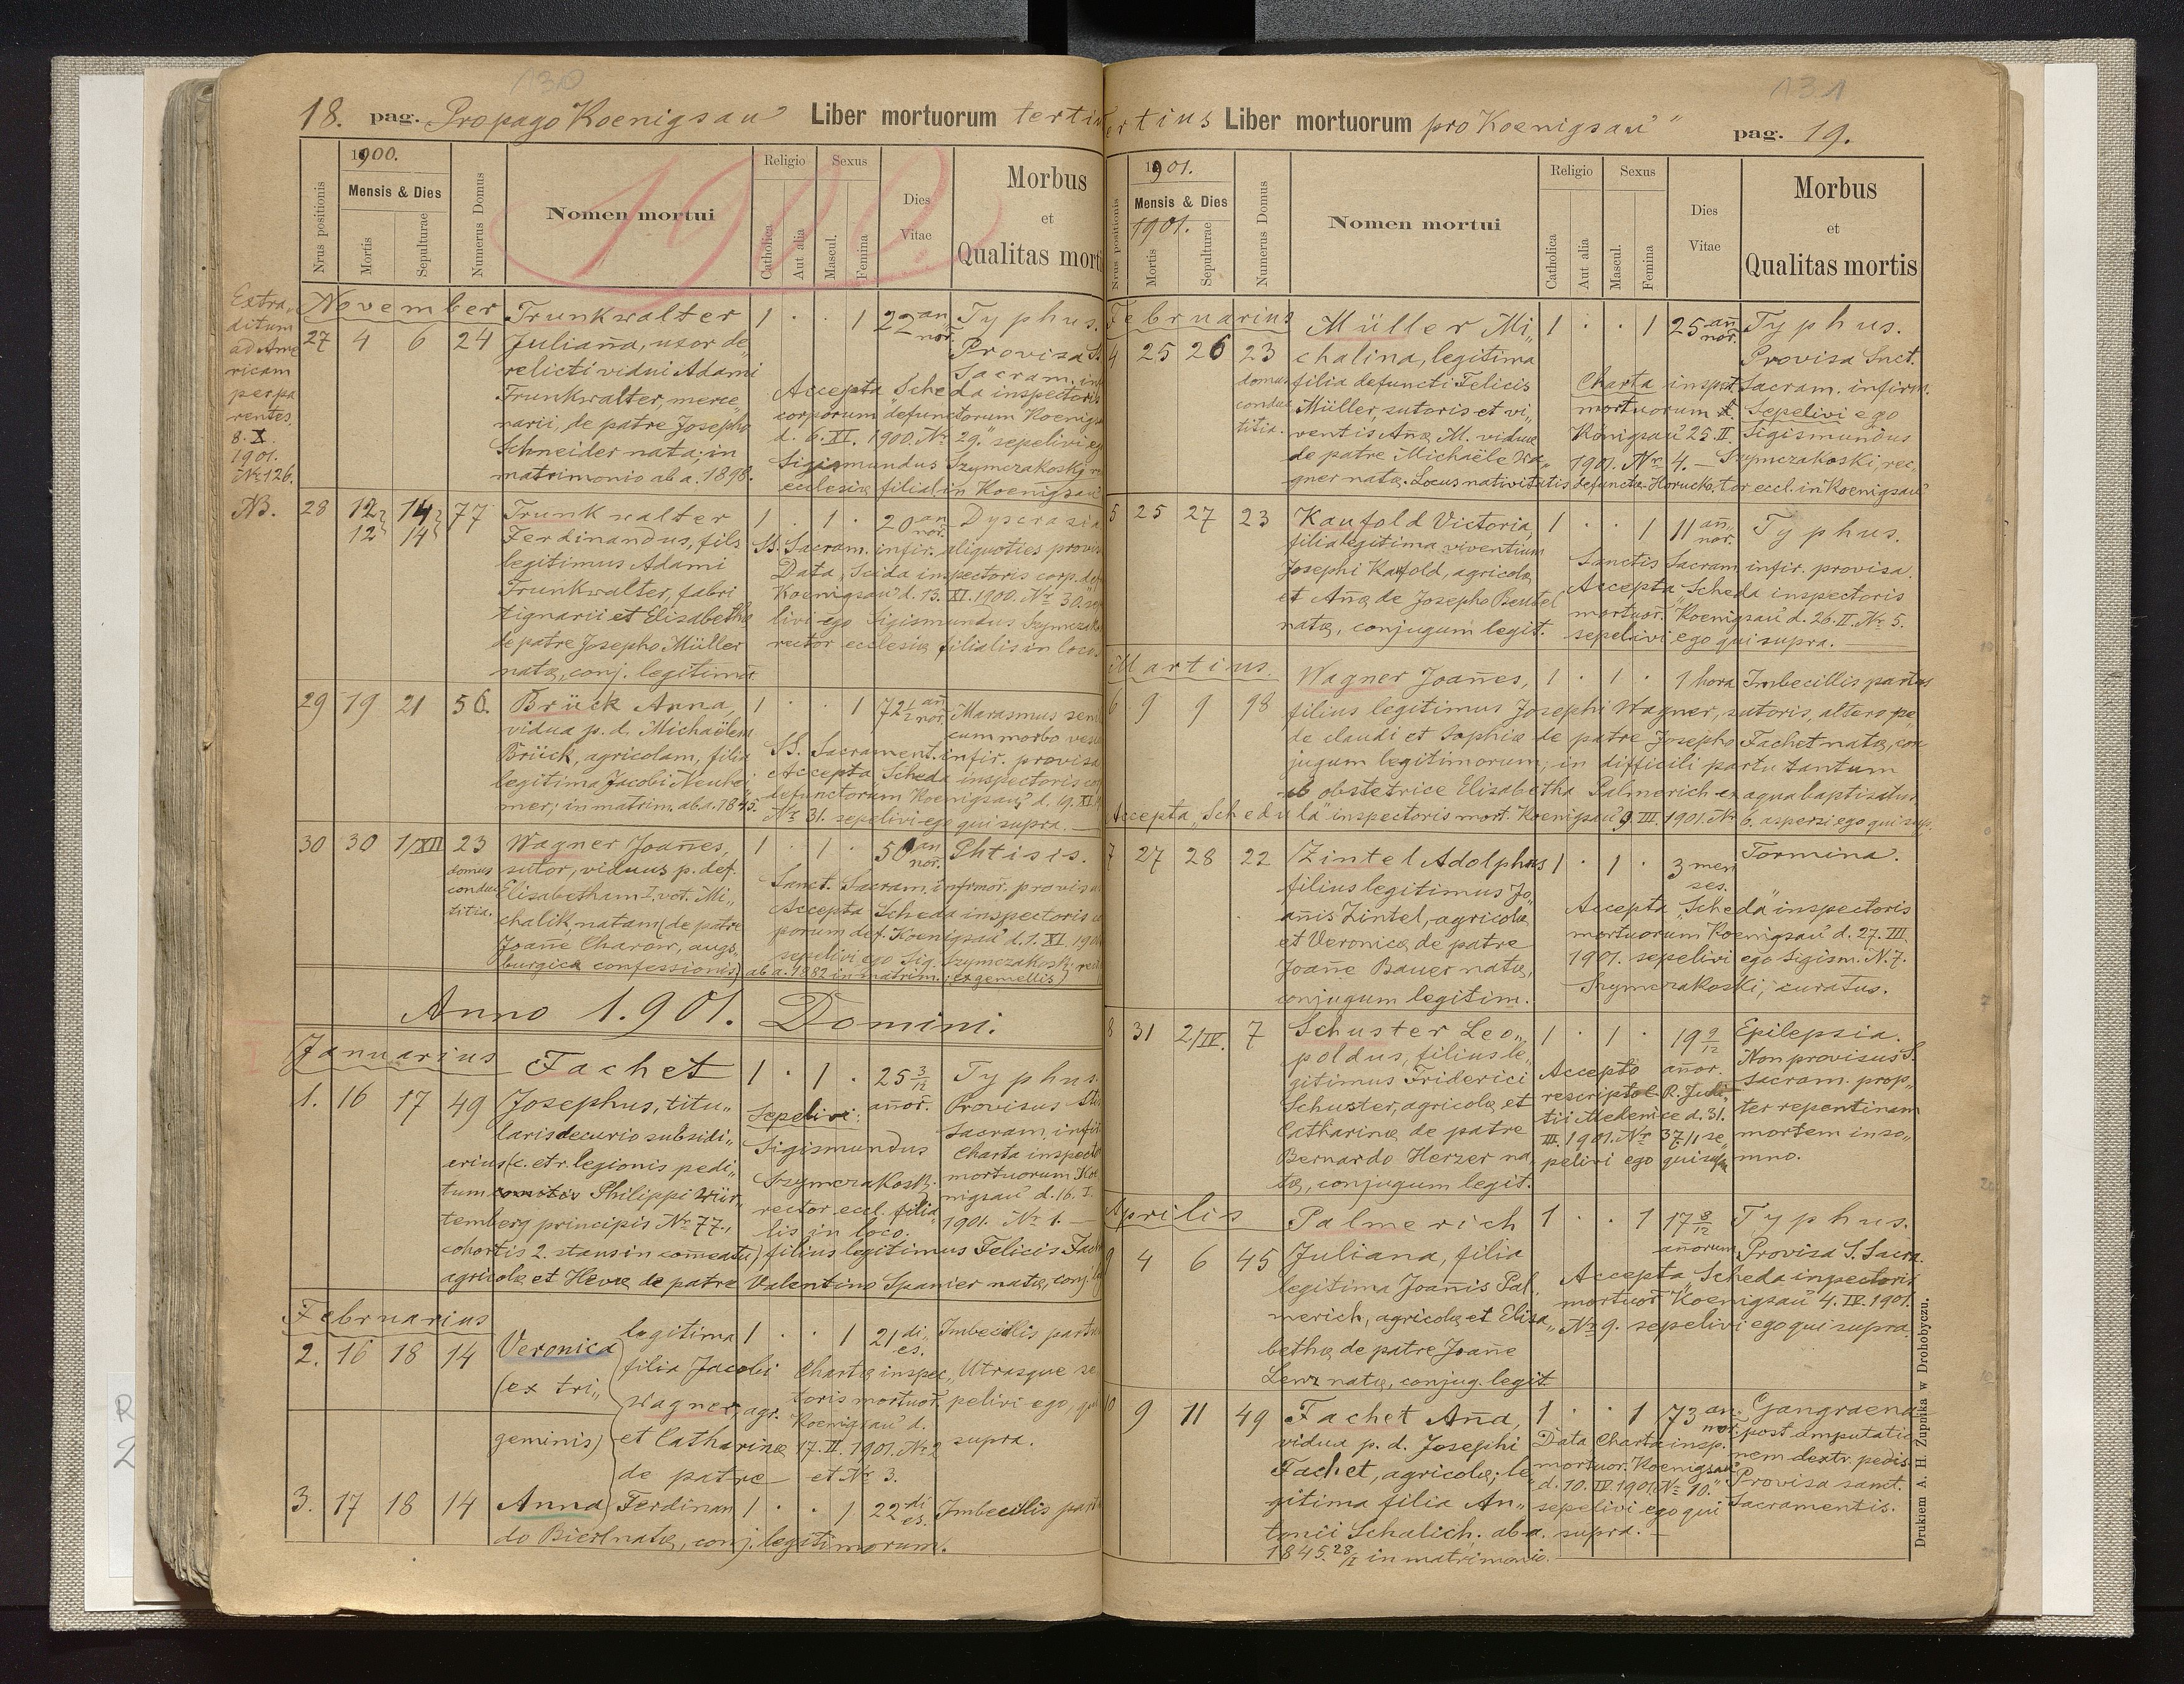 130
18. pag. Propago Koenigsau Liber mortuorum
1900.
Mensis & Dies
Nrus positionis
Mortis
Sepulturae
Numerus Domus
Nomen mortui
Religio
Catholica
Aut alia
Sexus
Mascul.
Femina
Dies
Vitae
Morbus
et
Qualitas
1902
Extra„
ditum
ad Ame
ricam
per pa
rentes.
8. X.
1901.
№ 126.
November
27 4 6 24
Trunkwalter
Juliana, uxor de„
relicti vidui Adami
Trunkwalter, merce„
narii, de patre Josepho
Schneider nata; in
matrimonio ab a. 1898.
1 . . 1 22 an
nor.
Typhus.
Provisa
Sacram.
Accepta „Scheda inspectoris
corporum defunctorum
d. 6. XI. 1900. Nr. 29." sepelivi
Sigismundus Szymczakoski
ecclesiæ filial. in Koenigsau
NB. 28 12 14 77
12 14
Trunkwalter
Ferdinandus, fils
legitimus Adami
Trunkwalter, fabri
tignarii et Elisabethæ
de patre Josepho Müller
natæ, conj. legitimor.
1 . 1 . 20 an
nor. Dyscrasia
SS. Sacram. infir. aliquoties
Data „Scida inspectoris corp.
Koenigsau" d. 13. XI. 1900. Nr. 30.
livi ego Sigismundus
rector ecclesiæ filialis in loco.
29 19 21 56.
Brück Anna,
vidua p. d. Michaëlem
Brück, agricolam, filia
legitima Jacobi
mer; in matrim. ab a. 1845.
1 . . 1 72½ an̄
nor. Marasmus
cum morbo
SS. Sacrament. infir. provisa
Accepta Scheda inspectoris
defunctorum Koenigsau" d. 19. XI.
Nr. 31. sepelivi ego qui supra.
30 30 1/XII 23
domus
conduc
titia.
Wagner Joan̄es,
sutor, viduus p. def.
Elisabetham I. vot. Mi„
chalik, natam (de patre
Joan̄e Charow, augs„
burgicæ confessionis) ab a. 1882 in matrim.; ex gemellis)
1 . 1 . 50 an
nor. Phtisis.
Sanct. Sacram. infirmor.
Accepta Scheda inspectoris
porum def. Koenigsau" d. 1. XI.
sepelivi ego Sig. Szymczakoski
Anno 1.901. Domini.
I
Januarius
1. 16 17 49
Fachet
Josephus, titu„
laris decurio subsidi„
arius (c. et r. legionis pedi„
tum Philippi Wür„
temberg principis Nr. 77.,
cohortis 2. stans in com̄eatu) filius legitimus Felicis
agricolæ et Hevæ de patre Valentino Spanier natæ, conj.
1 . 1 . 25 3/12
an̄or.
Typhus.
Provisus
Sacram.
Charta
mortuorum
nigsau" d. 16. I.
1901. Nr. 1.
Sepelivi:
Sigismundus
Szymczakoski
rector eccl. filia„
lis in loco.
Februarius
2. 16 18 14
Veronica
(ex tri„
geminis)
legitima
filia Jacobi
Wagner, agr.
et Catharinæ
de patre
Ferdinan
do natæ, conj. legitimorum.
1 . . 1 21 di„
es. Imbecillis
Charta inspec„
toris mortuor.
Koenigsau" d.
17. II. 1901. Nr. 2
et Nr. 3.
Utrasque
pelivi ego,
supra.
3. 17 18 14
Anna
1 . . 1 22 di
es. Imbecillis
131
tertius Liber mortuorum pro „Koenigsau" pag. 19.
1901.
Mensis & Dies
1901.
Nrus positionis
Mortis
Sepulturae
Numerus Domus
Nomen mortui
Religio
Catholica
Aut alia
Sexus
Mascul.
Femina
Dies
Vitae
Morbus
et
Qualitas mortis
Februarius
4 25 26 23
domus
conduc
titia.
Müller Mi„
chalina, legitima
filia defuncti Felicis
Müller, sutoris et vi„
ventis An̄æ M. viduæ
de patre Michaële Wa„
gner natæ. Locus nativitatis defunctæ Horucko.
1 . . 1 25 an̄
nor. Typhus.
Provisa Snct.
Sacram. infirm.
Sepelivi ego
Sigismundus
Szymczakoski, rec„
tor eccl. in Koenigsau"
Charta inspct.
mortuorum
Königsau" 25. II.
1901. Nr. 4.
5 25 27 23
Kaufold Victoria,
filia legitima viventium
Josephi Kaufold, agricolæ
et An̄æ de Josepho Beutel
natæ, conjugum legit.
1 . . 1 11 an̄„
nor. Typhus.
Sanctis Sacram. infir. provisa.
Accepta „Scheda inspectoris
mortuor. Koenigsau" d. 26. II. Nr. 5.
sepelivi ego qui supra.
Martius.
6 9 9 98
Wagner Joan̄es,
filius legitimus Josephi Wagner, sutoris, altero pe„
de claudi et Sophiæ de patre Josepho Fachet natæ, con
jugum legitimorum; in difficili partu tantum
ab obstetrice Elisabetha Palmerich ex aqua baptisatus.
Accepta „Schedula" inspectoris mort. Koenigsau" 9. III. 1901. Nr. 6. aspersi ego qui sup.
1 . 1 . 1 hora Imbecillis partus
7 27 28 22
Zintel Adolphus
filius legitimus Jo„
an̄is Zintel, agricolæ
et Veronicæ de patre
Joan̄e Bauer natæ,
conjugum legitim.
1 . 1 . 3 men
ses.
Tormina.
Accepta „Scheda" inspectoris
mortuorum Koenigsau" d. 27. III.
1901. sepelivi ego Sigism. N. 7.
Szymczakoski, curatus.
8 31 2/IV. 7
Schuster Leo„
poldus, filius le„
gitimus Friderici
Schuster, agricolæ et
Catharinæ de patre
Bernardo Herzer na„
tæ, conjugum legit.
1 . 1 . 19 2/12
an̄or.
Epilepsia.
Non provisus S.
Sacram. prop„
ter repentinam
mortem in so„
mno.
Accepto
rescripto C. R. Judi„
tii Medenice d. 31.
III. 1901. Nr. 37/1 se„
pelivi ego qui supra
Aprilis
9 4 6 45
Palmerich
Juliana, filia
legitima Joan̄is Pal„
merich, agricolæ et Elisa„
bethæ de patre Joan̄e
Lenz natæ, conjug. legit.
1 . . 1 17 8/12
an̄orum
Typhus.
Provisa S. Sacra.
Accepta „Scheda inspectoris
mortuor. Koenigsau" 4. IV. 1901.
Nr. 9. sepelivi ego qui supra.
10 9 11 49
Fachet An̄a,
vidua p. d. Josephi
Fachet, agricolæ; le„
gitima filia An„
tonii Schalich. ab a.
1845. 28/I in matrimonio.
1 . . 1 73 an.
nor.
Gangraena
post amputatio
nem dextr. pedis.
Provisa sanct.
Sacramentis.
Data Charta insp.
mortuor. Koenigsau"
d. 10. IV. 1901. Nr. 10."
sepelivi ego qui
supra.
Drukiem A. H. Żupnika w Drohobyczu.